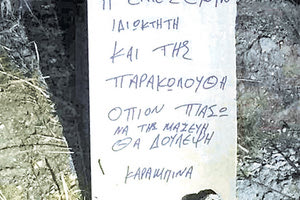 ΙΔΙΟΚΤΗΤΗ
ΚΑΙ ΤΗΣ
ΠΑΡΑΚΟΛΟΥΘΑ
ΟΠΙΟΝ ΠΑΣΩ
ΝΑ ΤΗΣ ΜΑΖΕΥΗ
ΘΑ ΔΟΥΛΕΨΗ
ΚΑΡΑΜΠΙΝΑ